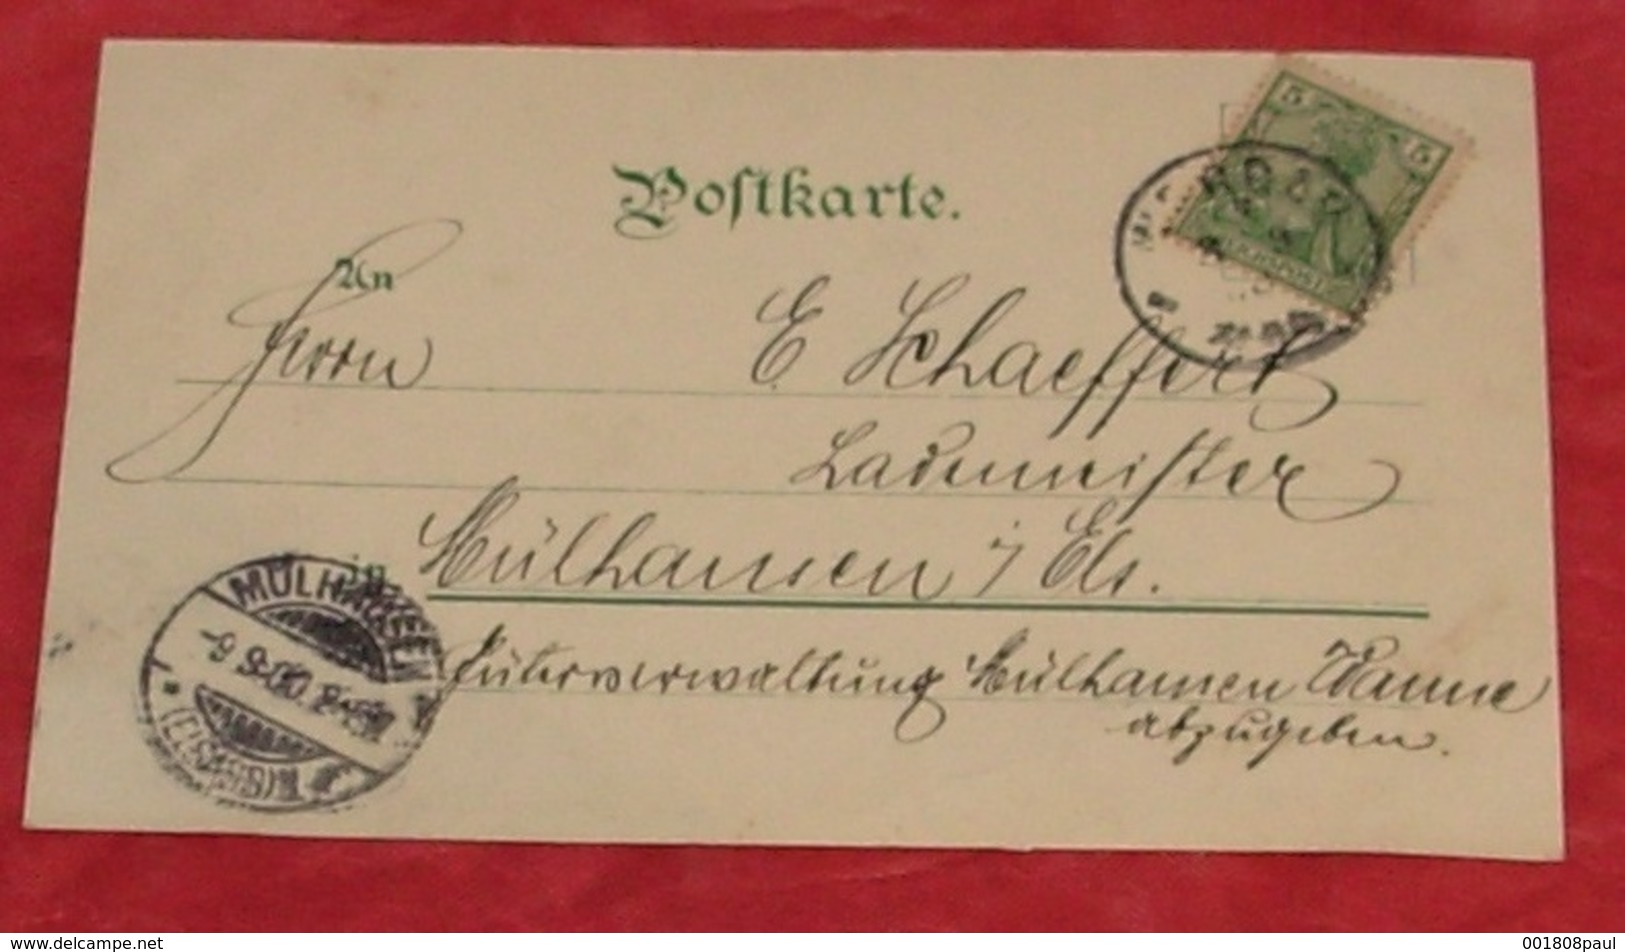 Postkarte.
An
Herrn E. Schaeffert
Lademeister
in Mülhausen i/ Els.
Güterverwaltung Mülhausen Wanne
abzugeben.
5 5
REICHSPOST
MÜLHAUSEN
-9 9.00
(ELSASS)
delcampe.net
001808paul